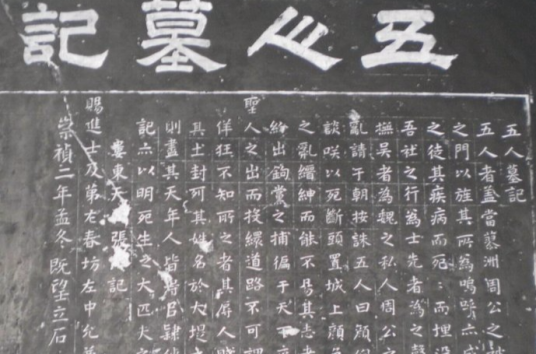 五人墓記
五人墓記
五人者蓋當蓼洲周公之
之門以旌其所為嗚呼亦
之徒其疾病而死而埋沒
吾社之行為士先者為之聲
撫吳者為魏之私人周公之
亂請于朝按誅五人曰顏佩
談咲以死斷頭置城上顏色
之亂縉紳而能不易其志者
紛出鉤黨之捕徧于天下
聖人之出而投繯道路不可謂
佯狂不知所之者其辱人賤
其土封列其姓名於大堤之
則盡其天年人皆得以隸使
記亦以明死生之大匹夫之
婁東天張記
賜進士及第左春坊左中允兼
崇禎二年孟冬既望立石